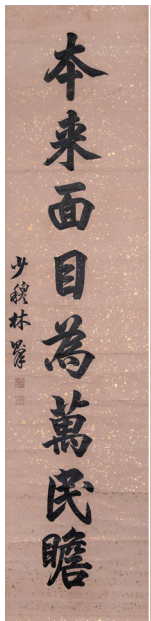 本来面目為萬民瞻
少穆林